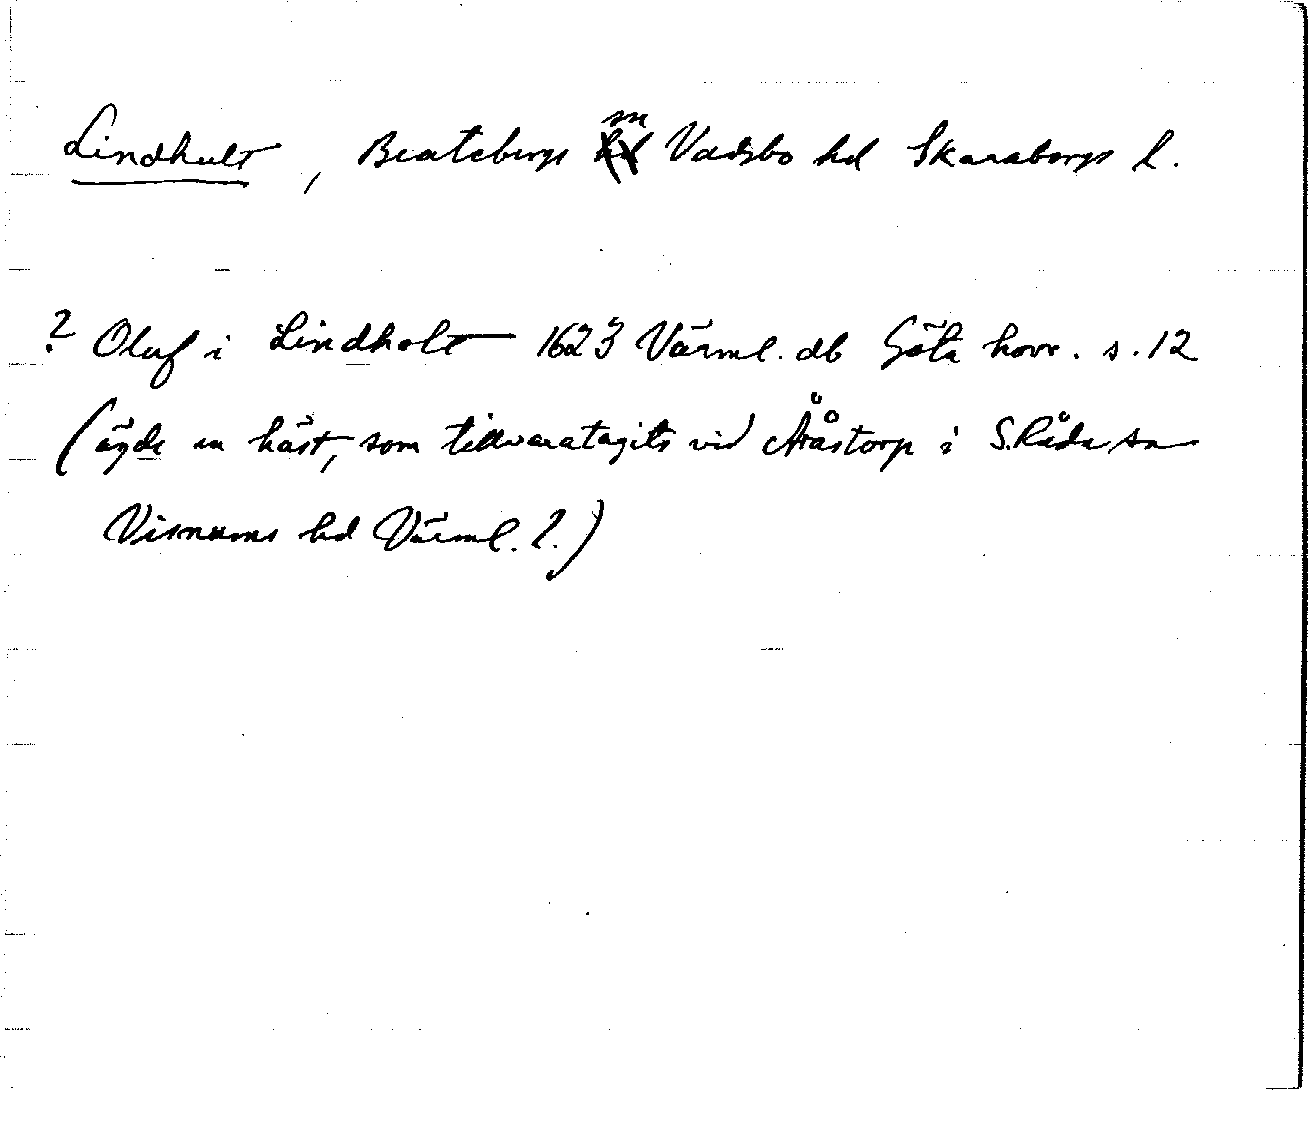 Lindhult, Beatebergs sn Vadsbo hd Skaraborgs l.
? Oluf i Lindholt 1623 Värml. db Göta hovr. s. 12
(ägde en häst, som tillvaratagits vid Åråstorp i S. Råda sn
Visnums hd Värml. l.)